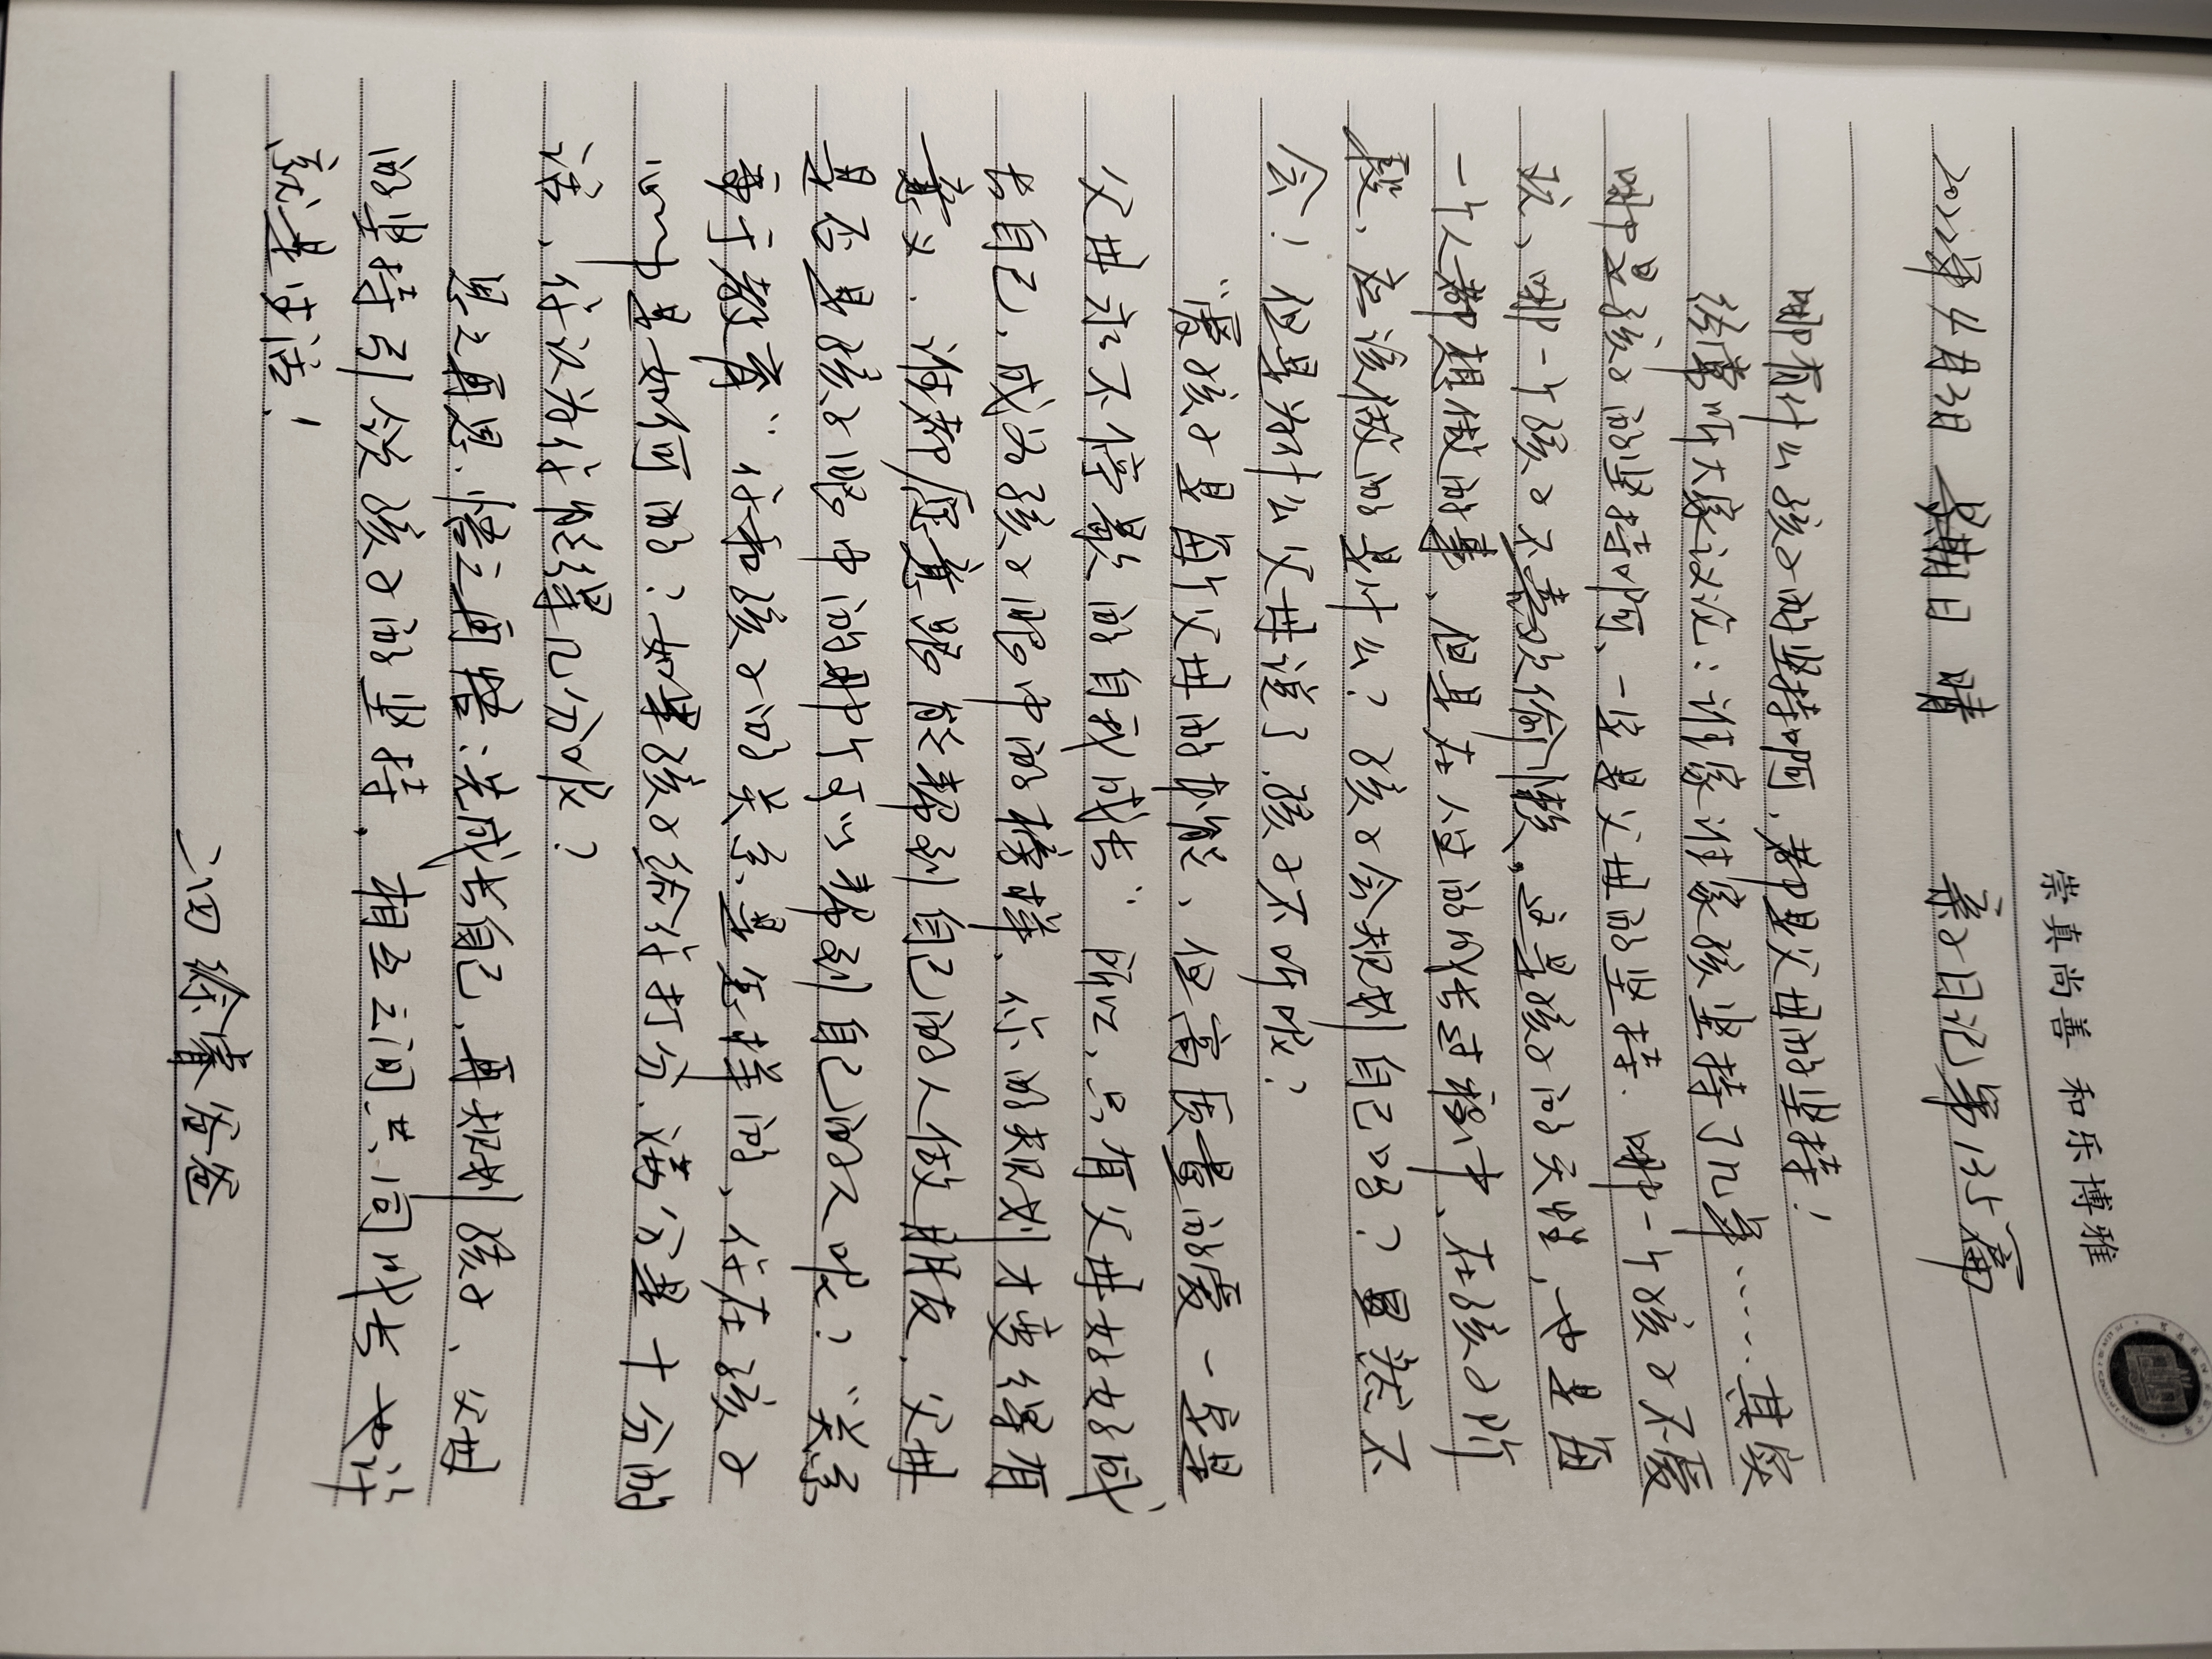 崇真尚善 和乐博雅
2022年4月3日 星期日 晴 亲子日记第135篇
哪有什么孩子的坚持啊,都是父母的坚持!
经常听大家议论:谁家谁家孩坚持了几年……其实
哪里是孩子的坚持啊、一定是父母的坚持.哪一个孩子不爱
玩、哪一个孩子不喜欢偷懒,这是孩子的天性、也是每
一个人都想做的事、但是在人生的成长过程中、在孩子阶
段、应该做的是什么?孩子会规划自己吗?显然不
会!但是为什么父母说了.孩子不听呢?
“爱孩子是每个父母的本能、但高质量的爱一定是
父母永不停歇的自我成长”所以、只有父母好好的成
长自己,成为孩子眼中的榜样、你的规划才变得有
意义.谁都愿意跟能帮到自己的人做朋友.父母
是否是孩子眼中的那个可以帮到自己的人呢?“关系
重于教育”你和孩子的关系是怎样的、你在孩子
心中是如何的?如果孩子给你打分.满分是十分的
话、你认为你能得几分呢?
思之再思.悟之再悟:先成长自己、再规划孩子、父母
的坚持引领孩子的坚持,相互之间共同成长也许
就是生活!
六四徐睿爸爸